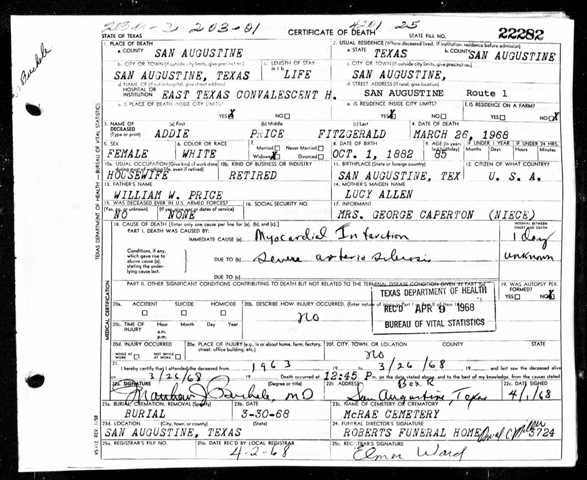 203-01
4201 25
STATE OF TEXAS
CERTIFICATE OF DEATH
STATE FILE NO. 22282
1. PLACE OF DEATH
2. USUAL RESIDENCE (Where deceased lived. If institution: residence before admission)
a. COUNTY SAN AUGUSTINE
a. STATE TEXAS
b. COUNTY SAN AUGUSTINE
b. CITY OR TOWN (If outside city limits, give precinct no.) SAN AUGUSTINE, TEXAS
c. LENGTH OF STAY LIFE
c. CITY OR TOWN (If outside city limits, give precinct no.) SAN AUGUSTINE,
d. NAME OF (If not in hospital, give street address) HOSPITAL OR INSTITUTION EAST TEXAS CONVALESCENT H.
d. STREET ADDRESS SAN AUGUSTINE Route 1
e. IS PLACE OF DEATH INSIDE CITY LIMITS? YES X NO
e. IS RESIDENCE INSIDE CITY LIMITS? YES NO X
f. IS RESIDENCE ON A FARM? YES NO
3. NAME OF DECEASED (Type or print)
(a) First ADDIE
(b) Middle PRICE
(c) Last FITZGERALD
4. DATE OF DEATH MARCH 26, 1968
5. SEX FEMALE
6. COLOR OR RACE WHITE
7. Married Never Married Widowed X Divorced
8. DATE OF BIRTH OCT. 1, 1882
9. AGE (In years last birthday) 85
IF UNDER 1 YEAR Months Days
IF UNDER 24 HRS. Hours Min.
10a. USUAL OCCUPATION (Give kind of work done HOUSEWIFE
10b. KIND OF BUSINESS OR INDUSTRY RETIRED
11. BIRTHPLACE (State or foreign country) SAN AUGUSTINE, TEX
12. CITIZEN OF WHAT COUNTRY? U. S. A.
13. FATHER'S NAME WILLIAM W. PRICE
14. MOTHER'S MAIDEN NAME LUCY ALLEN
15. WAS DECEASED EVER IN U.S. ARMED FORCES? (Yes, no, or unknown) NO (If yes, give war or dates of service) NONE
16. SOCIAL SECURITY NO.
17. INFORMANT MRS. GEORGE CAPERTON (NIECE)
18. CAUSE OF DEATH (Enter only one cause per line for (a), (b), and (c).)
INTERVAL BETWEEN ONSET AND DEATH
PART I. DEATH WAS CAUSED BY:
IMMEDIATE CAUSE (a) Myocardial Infarction 1 day
Conditions, if any, which gave rise to above cause (a), stating the underlying cause last.
DUE TO (b) Severe arterio sclerosis unknown
DUE TO (c)
PART II. OTHER SIGNIFICANT CONDITIONS CONTRIBUTING TO DEATH BUT NOT RELATED TO THE TERMINAL DISEASE CONDITION GIVEN IN PART I(a)
19. WAS AUTOPSY PERFORMED? YES NO X
TEXAS DEPARTMENT OF HEALTH
REC'D APR 9 1968
BUREAU OF VITAL STATISTICS
20a. ACCIDENT SUICIDE HOMICIDE
20b. DESCRIBE HOW INJURY OCCURRED.
no
20c. TIME OF INJURY Hour a.m. p.m. Month Day Year
20d. INJURY OCCURRED WHILE AT WORK NOT WHILE AT WORK
20e. PLACE OF INJURY (e.g., in or about home, farm, factory, street, office building, etc.)
20f. CITY, TOWN, OR LOCATION COUNTY STATE
no
21. I hereby certify that I attended the deceased from 1963 to 3/26/68 and last saw the deceased alive
3/26/68 Death occurred at 12:45 P.m. on the date stated above, and to the best of my knowledge, from the causes stated.
22a. SIGNATURE (Degree or title) MD
22b. ADDRESS Box R San Augustine, Texas
22c. DATE SIGNED 4/1/68
23a. BURIAL, CREMATION, REMOVAL (Specify) BURIAL
23b. DATE 3-30-68
23c. NAME OF CEMETERY OR CREMATORY McRAE CEMETERY
23d. LOCATION (City, town, or county) (State) SAN AUGUSTINE, TEXAS
24. FUNERAL DIRECTOR'S SIGNATURE ROBERTS FUNERAL HOME 3724
25a. REGISTRAR'S FILE NO.
25b. DATE REC'D BY LOCAL REGISTRAR 4-2-68
25c. REGISTRAR'S SIGNATURE Elmer Ward
TEXAS DEPARTMENT OF HEALTH — BUREAU OF VITAL STATISTICS
MEDICAL CERTIFICATION